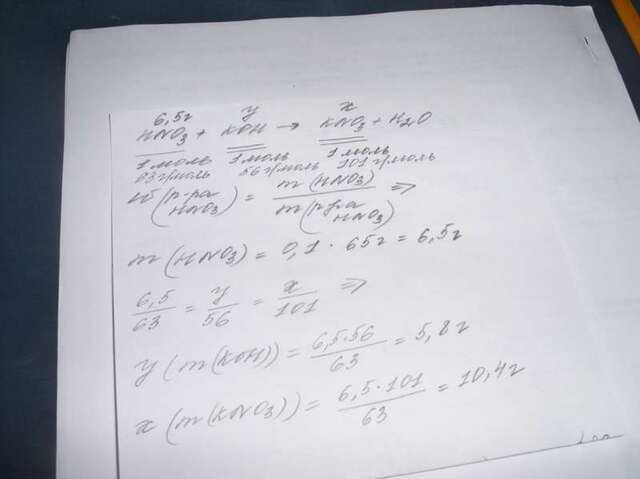 6,5г y x
HNO3 + KOH → KNO3 + H2O
1 моль 1 моль 1 моль
63 г/моль 56 г/моль 101 г/моль
W (р-ра HNO3) = m (HNO3) / m (р-ра HNO3) =>
m (HNO3) = 0,1 · 65г = 6,5г
6,5 / 63 = y / 56 = x / 101 =>
y (m (KOH)) = 6,5·56 / 63 = 5,8г
x (m (KNO3)) = 6,5·101 / 63 = 10,4г